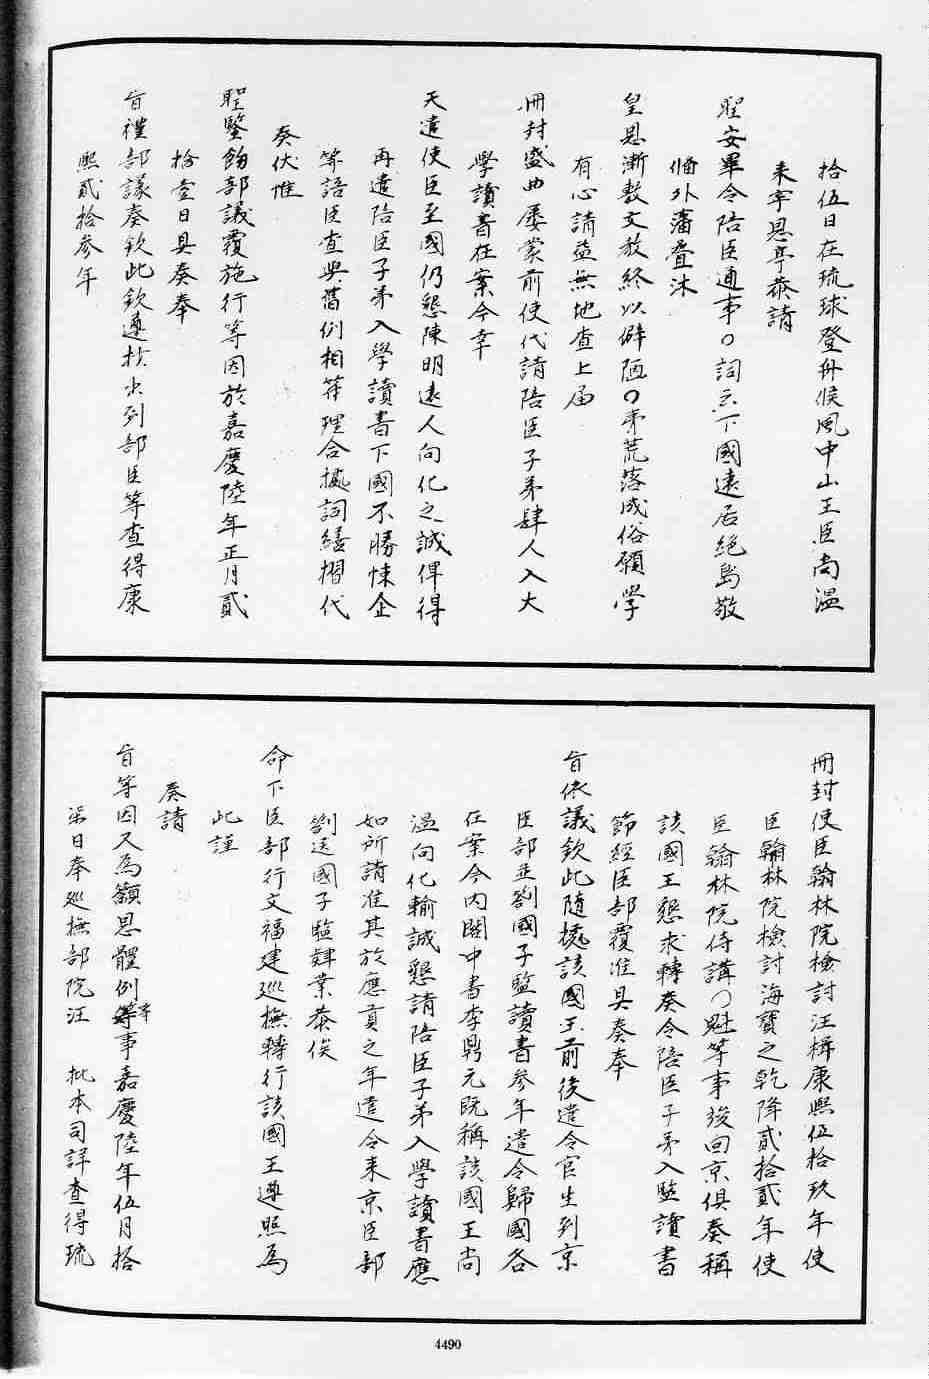 拾伍日在琉球登舟候風中山王臣尚溫
来寧恩亭恭請
聖安畢令陪臣通事〇詞忝下國遠居絶島敬
僃外藩疊沐
皇恩漸敷文教終以僻陋〇荒落成俗願學
有心請益無地查上届
冊封盛典屢蒙前使代請陪臣子弟肆人入大
學讀書在案今幸
天遣使臣至國仍懇陳明遠人向化之誠俾得
再遣陪臣子弟入學讀書下國不勝悚企
等語臣查與舊例相符理合據詞繕摺代
奏伏惟
聖鑒飭部議覆施行等因於嘉慶陸年正月貳
拾壹日具奏奉
旨禮部議奏欽此欽遵抄出到部臣等查得康
熙貳拾參年
冊封使臣翰林院檢討汪楫康熙伍拾玖年使
臣翰林院檢討海寶之乾隆貳拾貳年使
臣翰林院侍講〇魁等事竣回京俱奏稱
該國王懇求轉奏令陪臣子弟入監讀書
節經臣部覆准具奏奉
旨依議欽此隨據該國王前後遣令官生到京
臣部並劄國子監讀書參年遣令歸國各
在案今內閣中書李鼎元既稱該國王尚
溫向化輸誠懇請陪臣子弟入學讀書應
如所請准其於應貢之年遣令来京臣部
劄送國子監肄業恭俟
命下臣部行文福建巡撫轉行該國王遵照為
此謹
奏請
旨等因又為籲恩體例等事嘉慶陸年伍月拾
柒日奉巡撫部院汪 批本司詳查得琉
4490